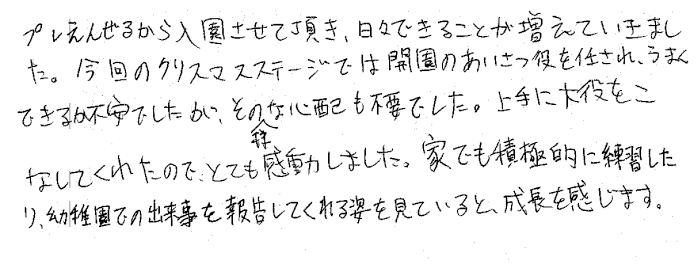 プレえんぜるから入園させて頂き、日々できることが増えていきまし
た。今回のクリスマスステージでは開園のあいさつ役を任され、うまく
できるか不安でしたが、その様な心配も不要でした。上手に大役をこ
なしてくれたので、とても感動しました。家でも積極的に練習した
り、幼稚園での出来事を報告してくれる姿を見ていると、成長を感じます。